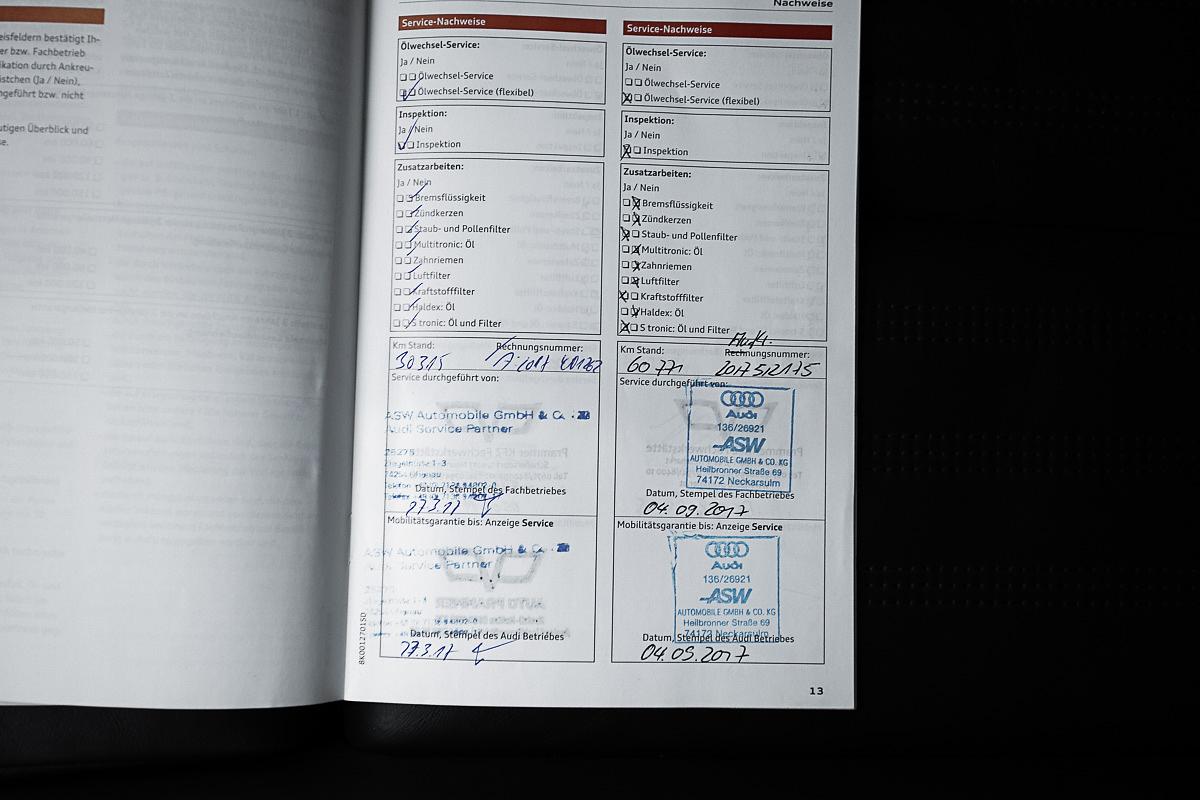 Nachweise
eisfeldern bestätigt Ih-
er bzw. Fachbetrieb
ikation durch Ankreu-
istchen (Ja / Nein),
ngeführt bzw. nicht
utigen Überblick und
se.
Service-Nachweise
Ölwechsel-Service:
Ja / Nein
Ölwechsel-Service
Ölwechsel-Service (flexibel)
Inspektion:
Ja / Nein
Inspektion
Zusatzarbeiten:
Ja / Nein
Bremsflüssigkeit
Zündkerzen
Staub- und Pollenfilter
Multitronic: Öl
Zahnriemen
Luftfilter
Kraftstofffilter
Haldex: Öl
S tronic: Öl und Filter
Km Stand: Rechnungsnummer:
30315
Service durchgeführt von:
ASW Automobile GmbH & Co.
Audi Service Partner
Datum, Stempel des Fachbetriebes
27.3.17
Mobilitätsgarantie bis: Anzeige Service
ASW Automobile GmbH & Co.
Audi Service Partner
Datum, Stempel des Audi Betriebes
27.3.17
8K0012701SD
Service-Nachweise
Ölwechsel-Service:
Ja / Nein
Ölwechsel-Service
Ölwechsel-Service (flexibel)
Inspektion:
Ja / Nein
Inspektion
Zusatzarbeiten:
Ja / Nein
Bremsflüssigkeit
Zündkerzen
Staub- und Pollenfilter
Multitronic: Öl
Zahnriemen
Luftfilter
Kraftstofffilter
Haldex: Öl
S tronic: Öl und Filter
Km Stand: Rechnungsnummer:
60771
Service durchgeführt von:
Audi
136/26921
ASW
AUTOMOBILE GMBH & CO. KG
Heilbronner Straße 69
74172 Neckarsulm
Datum, Stempel des Fachbetriebes
04.09.2017
Mobilitätsgarantie bis: Anzeige Service
Audi
136/26921
ASW
AUTOMOBILE GMBH & CO. KG
Heilbronner Straße 69
74172 Neckarsulm
Datum, Stempel des Audi Betriebes
04.09.2017
13